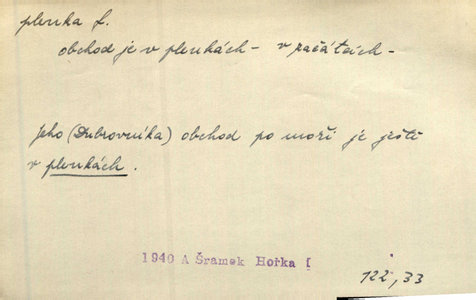 plenka f.
obchod je v plenkách - v začátcích -
Jeho (Dubrovníka) obchod po moři je ještě
v plenkách.
1940 A Šramek Hořka I
122, 33